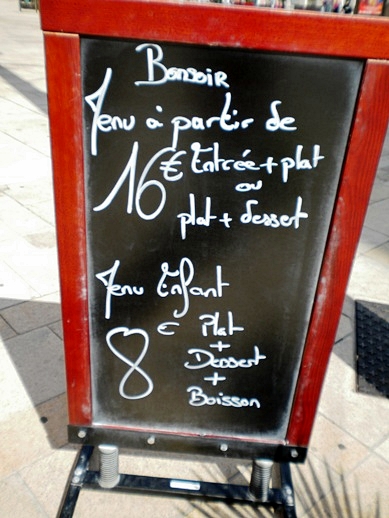 Bonsoir
Menu à partir de
16 € Entrée + plat
ou
plat + dessert
Menu Enfant
8 € Plat
+
Dessert
+
Boisson